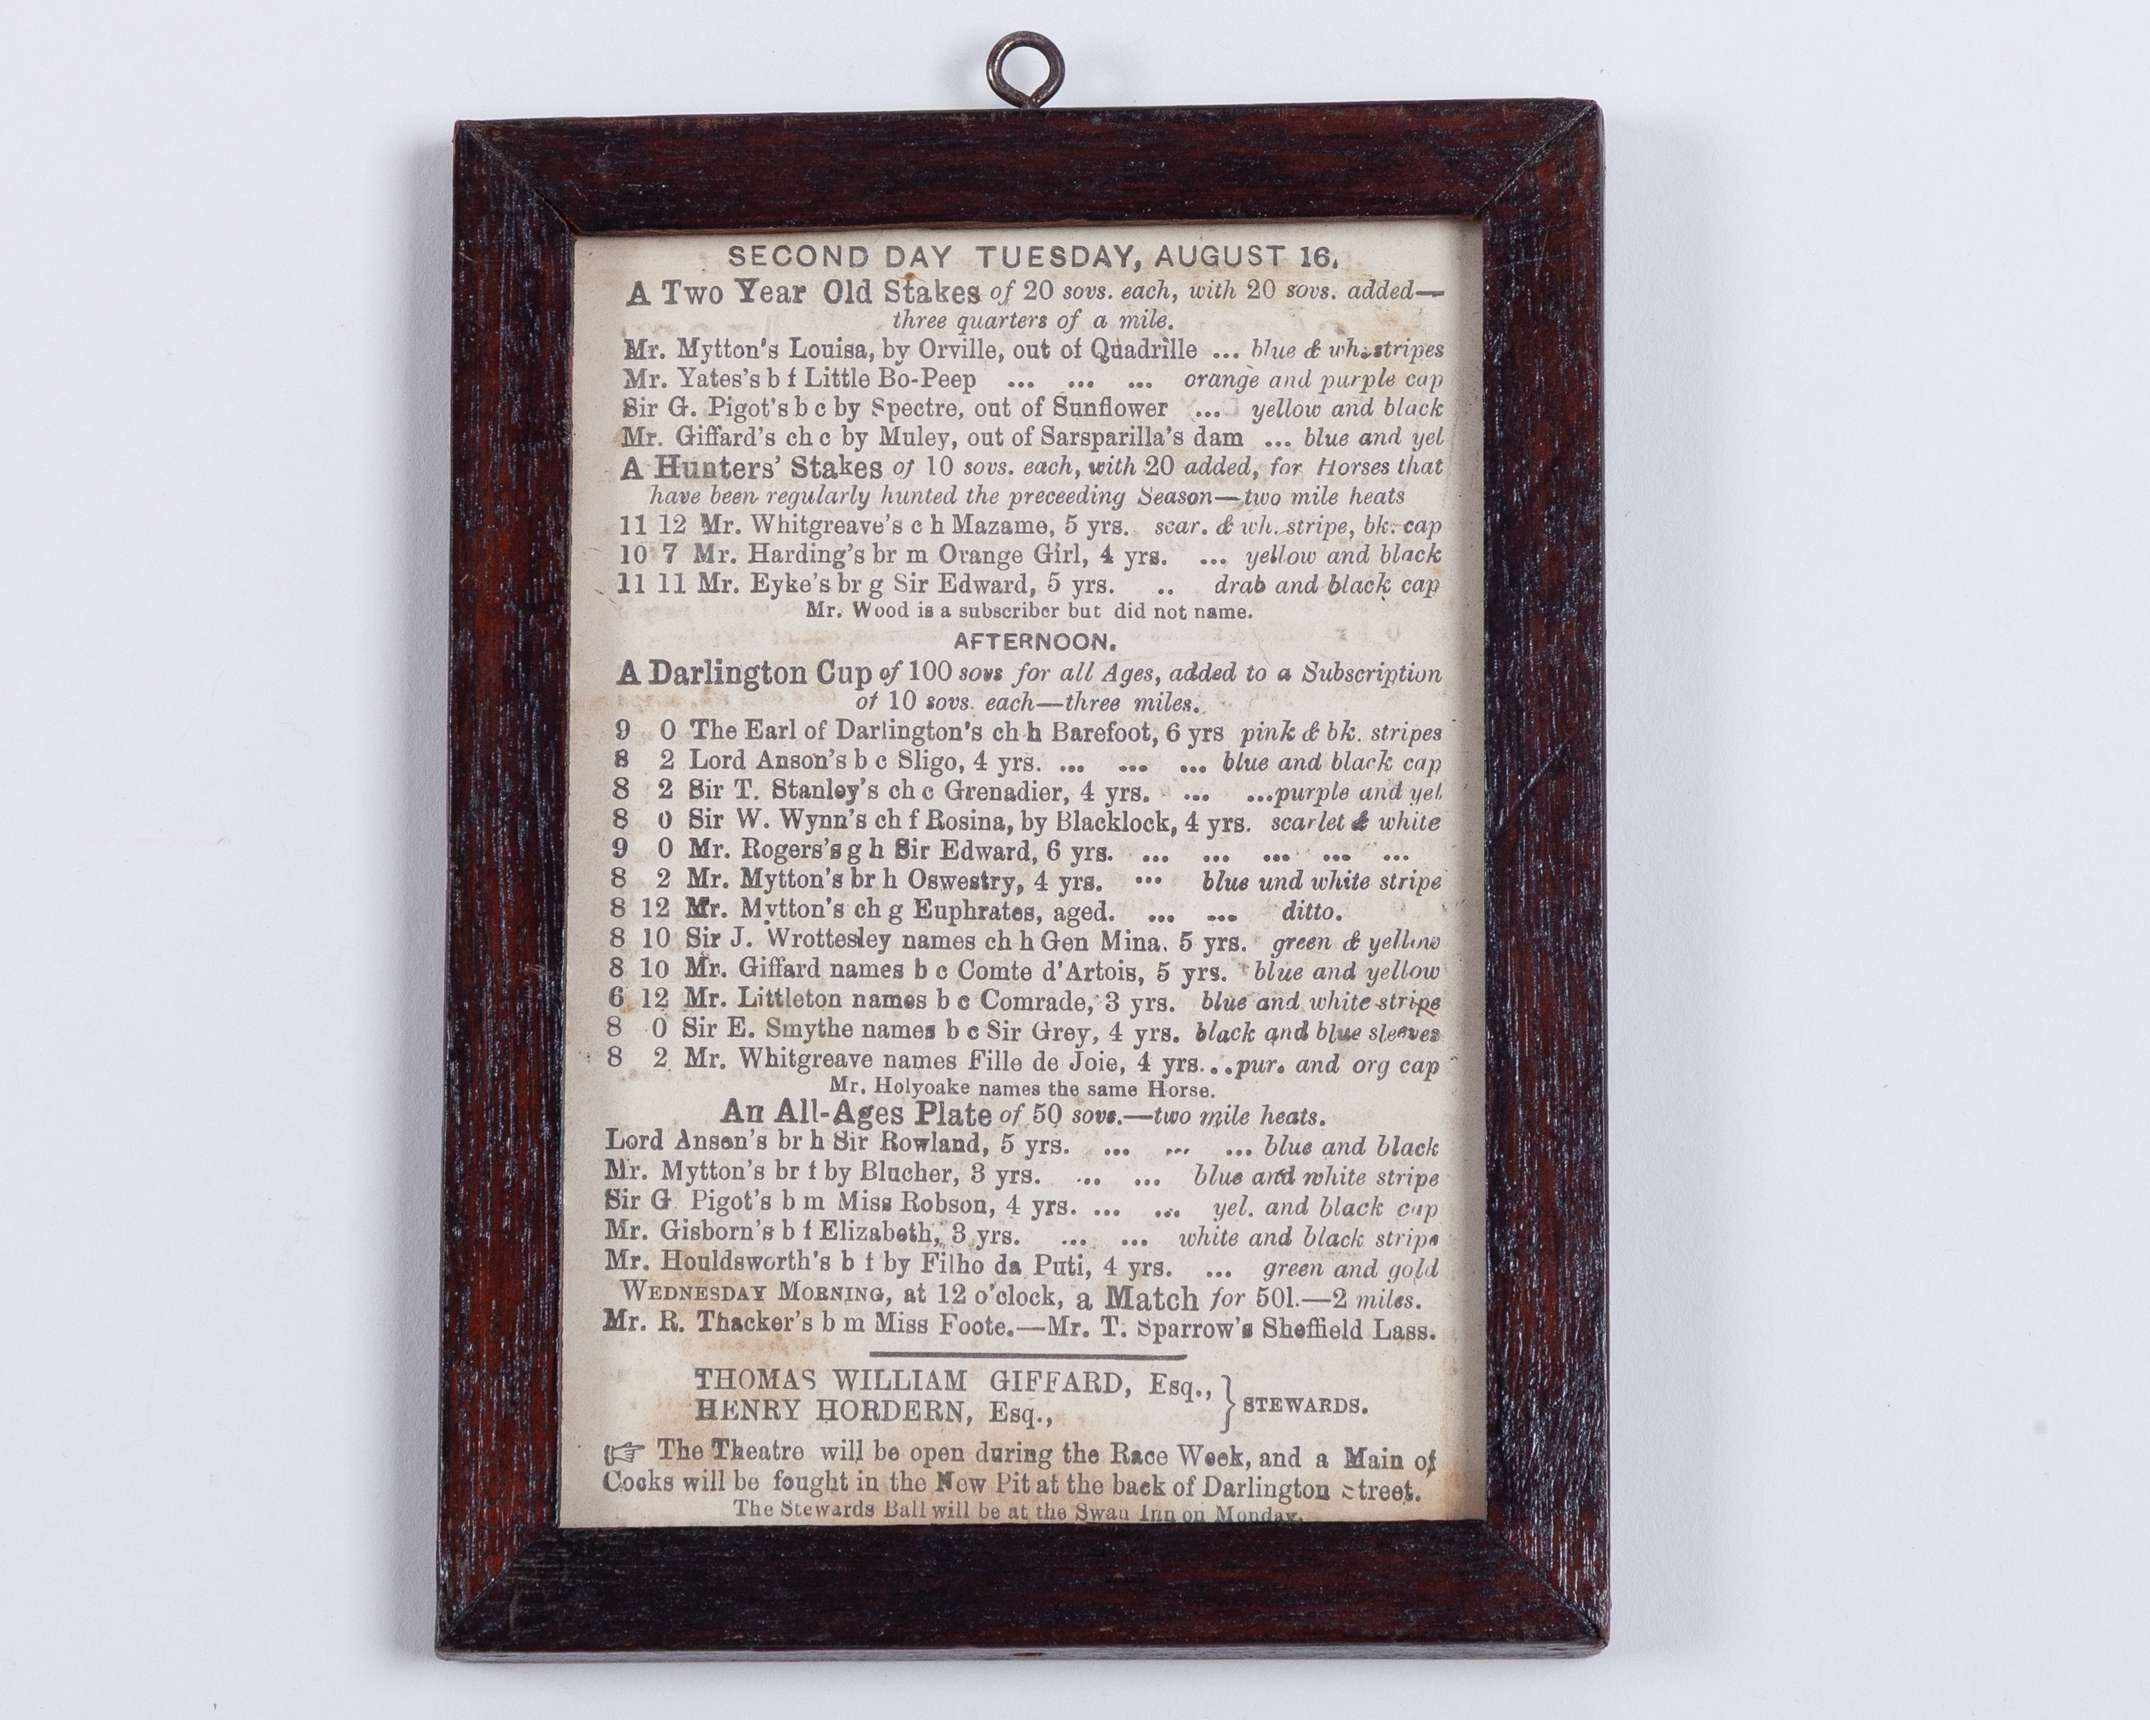 SECOND DAY TUESDAY, AUGUST 16.
A Two Year Old Stakes of 20 sovs. each, with 20 sovs. added—
three quarters of a mile.
Mr. Mytton's Louisa, by Orville, out of Quadrille ... blue & wh. stripes
Mr. Yates's b f Little Bo-Peep ... ... ... orange and purple cap
Sir G. Pigot's b c by Spectre, out of Sunflower ... yellow and black
Mr. Giffard's ch c by Muley, out of Sarsparilla's dam ... blue and yel
A Hunters' Stakes of 10 sovs. each, with 20 added, for Horses that
have been regularly hunted the preceeding Season—two mile heats
11 12 Mr. Whitgreave's c h Mazame, 5 yrs. scar. & wh. stripe, bk. cap
10 7 Mr. Harding's br m Orange Girl, 4 yrs. ... yellow and black
11 11 Mr. Eyke's br g Sir Edward, 5 yrs. .. drab and black cap
Mr. Wood is a subscriber but did not name.
AFTERNOON.
A Darlington Cup of 100 sovs for all Ages, added to a Subscription
of 10 sovs. each—three miles.
9 0 The Earl of Darlington's ch h Barefoot, 6 yrs pink & bk. stripes
8 2 Lord Anson's b c Sligo, 4 yrs. ... ... ... blue and black cap
8 2 Sir T. Stanley's ch c Grenadier, 4 yrs. ... ...purple and yel
8 0 Sir W. Wynn's ch f Rosina, by Blacklock, 4 yrs. scarlet & white
9 0 Mr. Rogers's g h Sir Edward, 6 yrs. ... ... ... ... ...
8 2 Mr. Mytton's br h Oswestry, 4 yrs. ... blue und white stripe
8 12 Mr. Mytton's ch g Euphrates, aged. ... ... ditto.
8 10 Sir J. Wrottesley names ch h Gen Mina. 5 yrs. green & yellow
8 10 Mr. Giffard names b c Comte d'Artois, 5 yrs. blue and yellow
6 12 Mr. Littleton names b c Comrade, 3 yrs. blue and white stripe
8 0 Sir E. Smythe names b c Sir Grey, 4 yrs. black and blue sleeves
8 2 Mr. Whitgreave names Fille de Joie, 4 yrs...pur. and org cap
Mr. Holyoake names the same Horse.
An All-Ages Plate of 50 sovs.—two mile heats.
Lord Anson's br h Sir Rowland, 5 yrs. ... ... ... blue and black
Mr. Mytton's br f by Blucher, 3 yrs. ... ... blue and white stripe
Sir G Pigot's b m Miss Robson, 4 yrs. ... ... yel. and black cap
Mr. Gisborn's b f Elizabeth, 3 yrs. ... ... white and black stripe
Mr. Houldsworth's b f by Filho da Puti, 4 yrs. ... green and gold
WEDNESDAY MORNING, at 12 o'clock, a Match for 50l.—2 miles.
Mr. R. Thacker's b m Miss Foote.—Mr. T. Sparrow's Sheffield Lass.
THOMAS WILLIAM GIFFARD, Esq.,
HENRY HORDERN, Esq., } STEWARDS.
☞ The Theatre will be open during the Race Week, and a Main of
Cocks will be fought in the New Pit at the back of Darlington street.
The Stewards Ball will be at the Swan Inn on Monday.